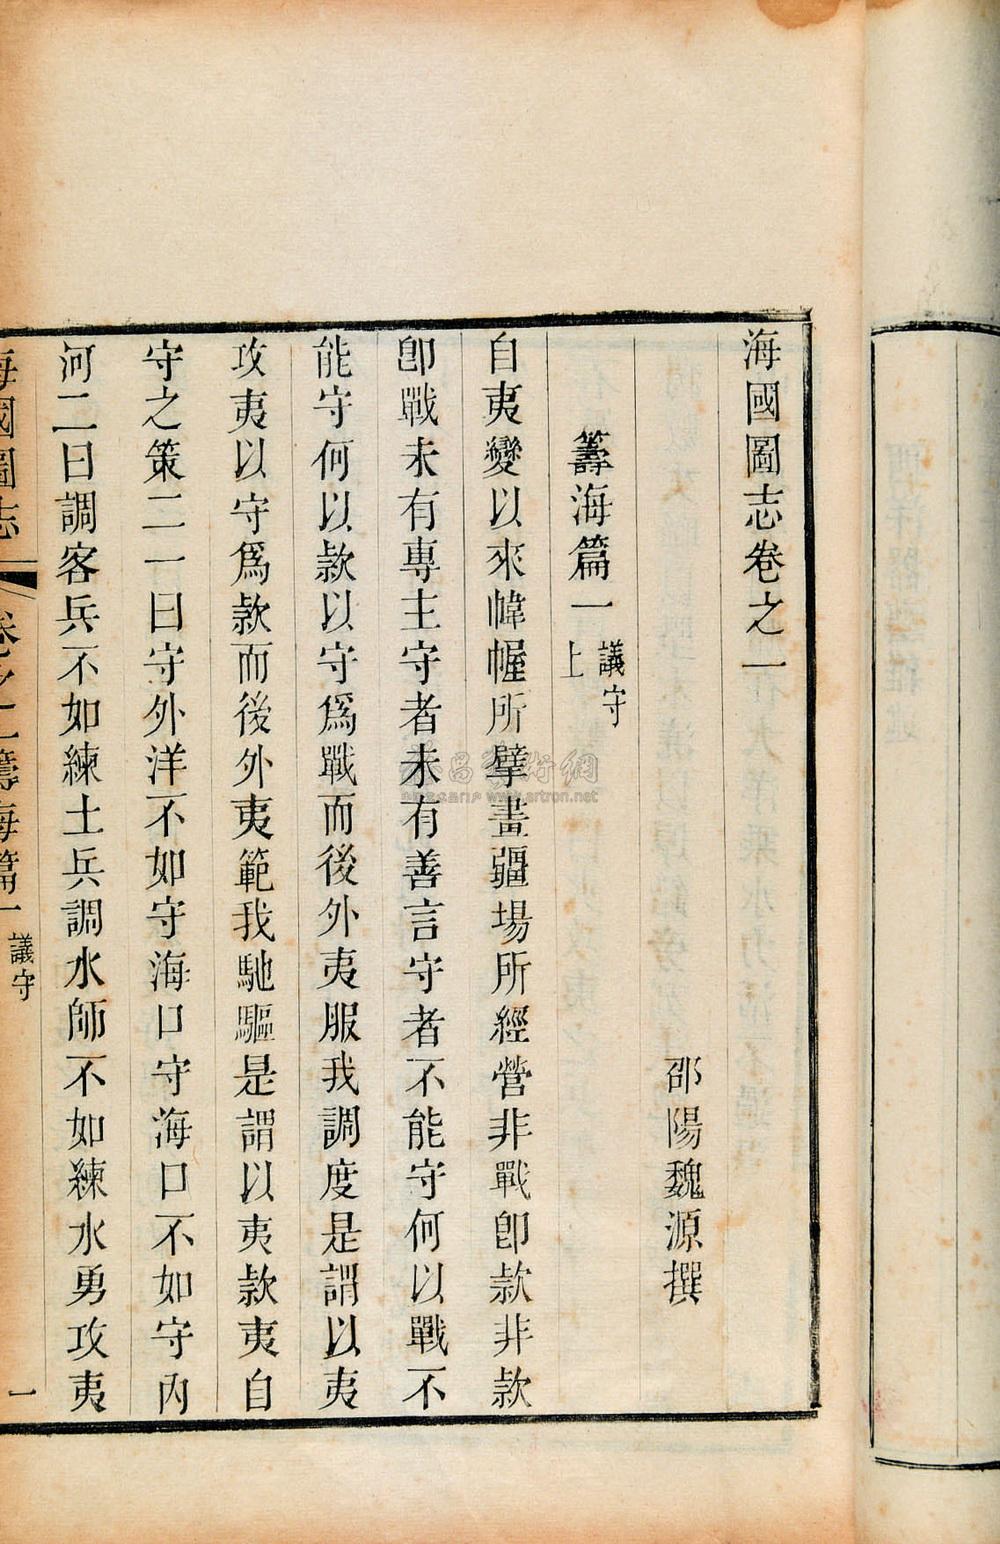 海國圖志卷之一
邵陽魏源撰
籌海篇一 議守上
自夷變以來幃幄所擘畫疆場所經營非戰卽款非款
卽戰未有專主守者未有善言守者不能守何以戰不
能守何以款以守爲戰而後外夷服我調度是謂以夷
攻夷以守爲款而後外夷範我馳驅是謂以夷款夷自
守之策二一曰守外洋不如守海口守海口不如守內
河二曰調客兵不如練土兵調水師不如練水勇攻夷
海國圖志 卷之一籌海篇一 議守 一
www.artron.net